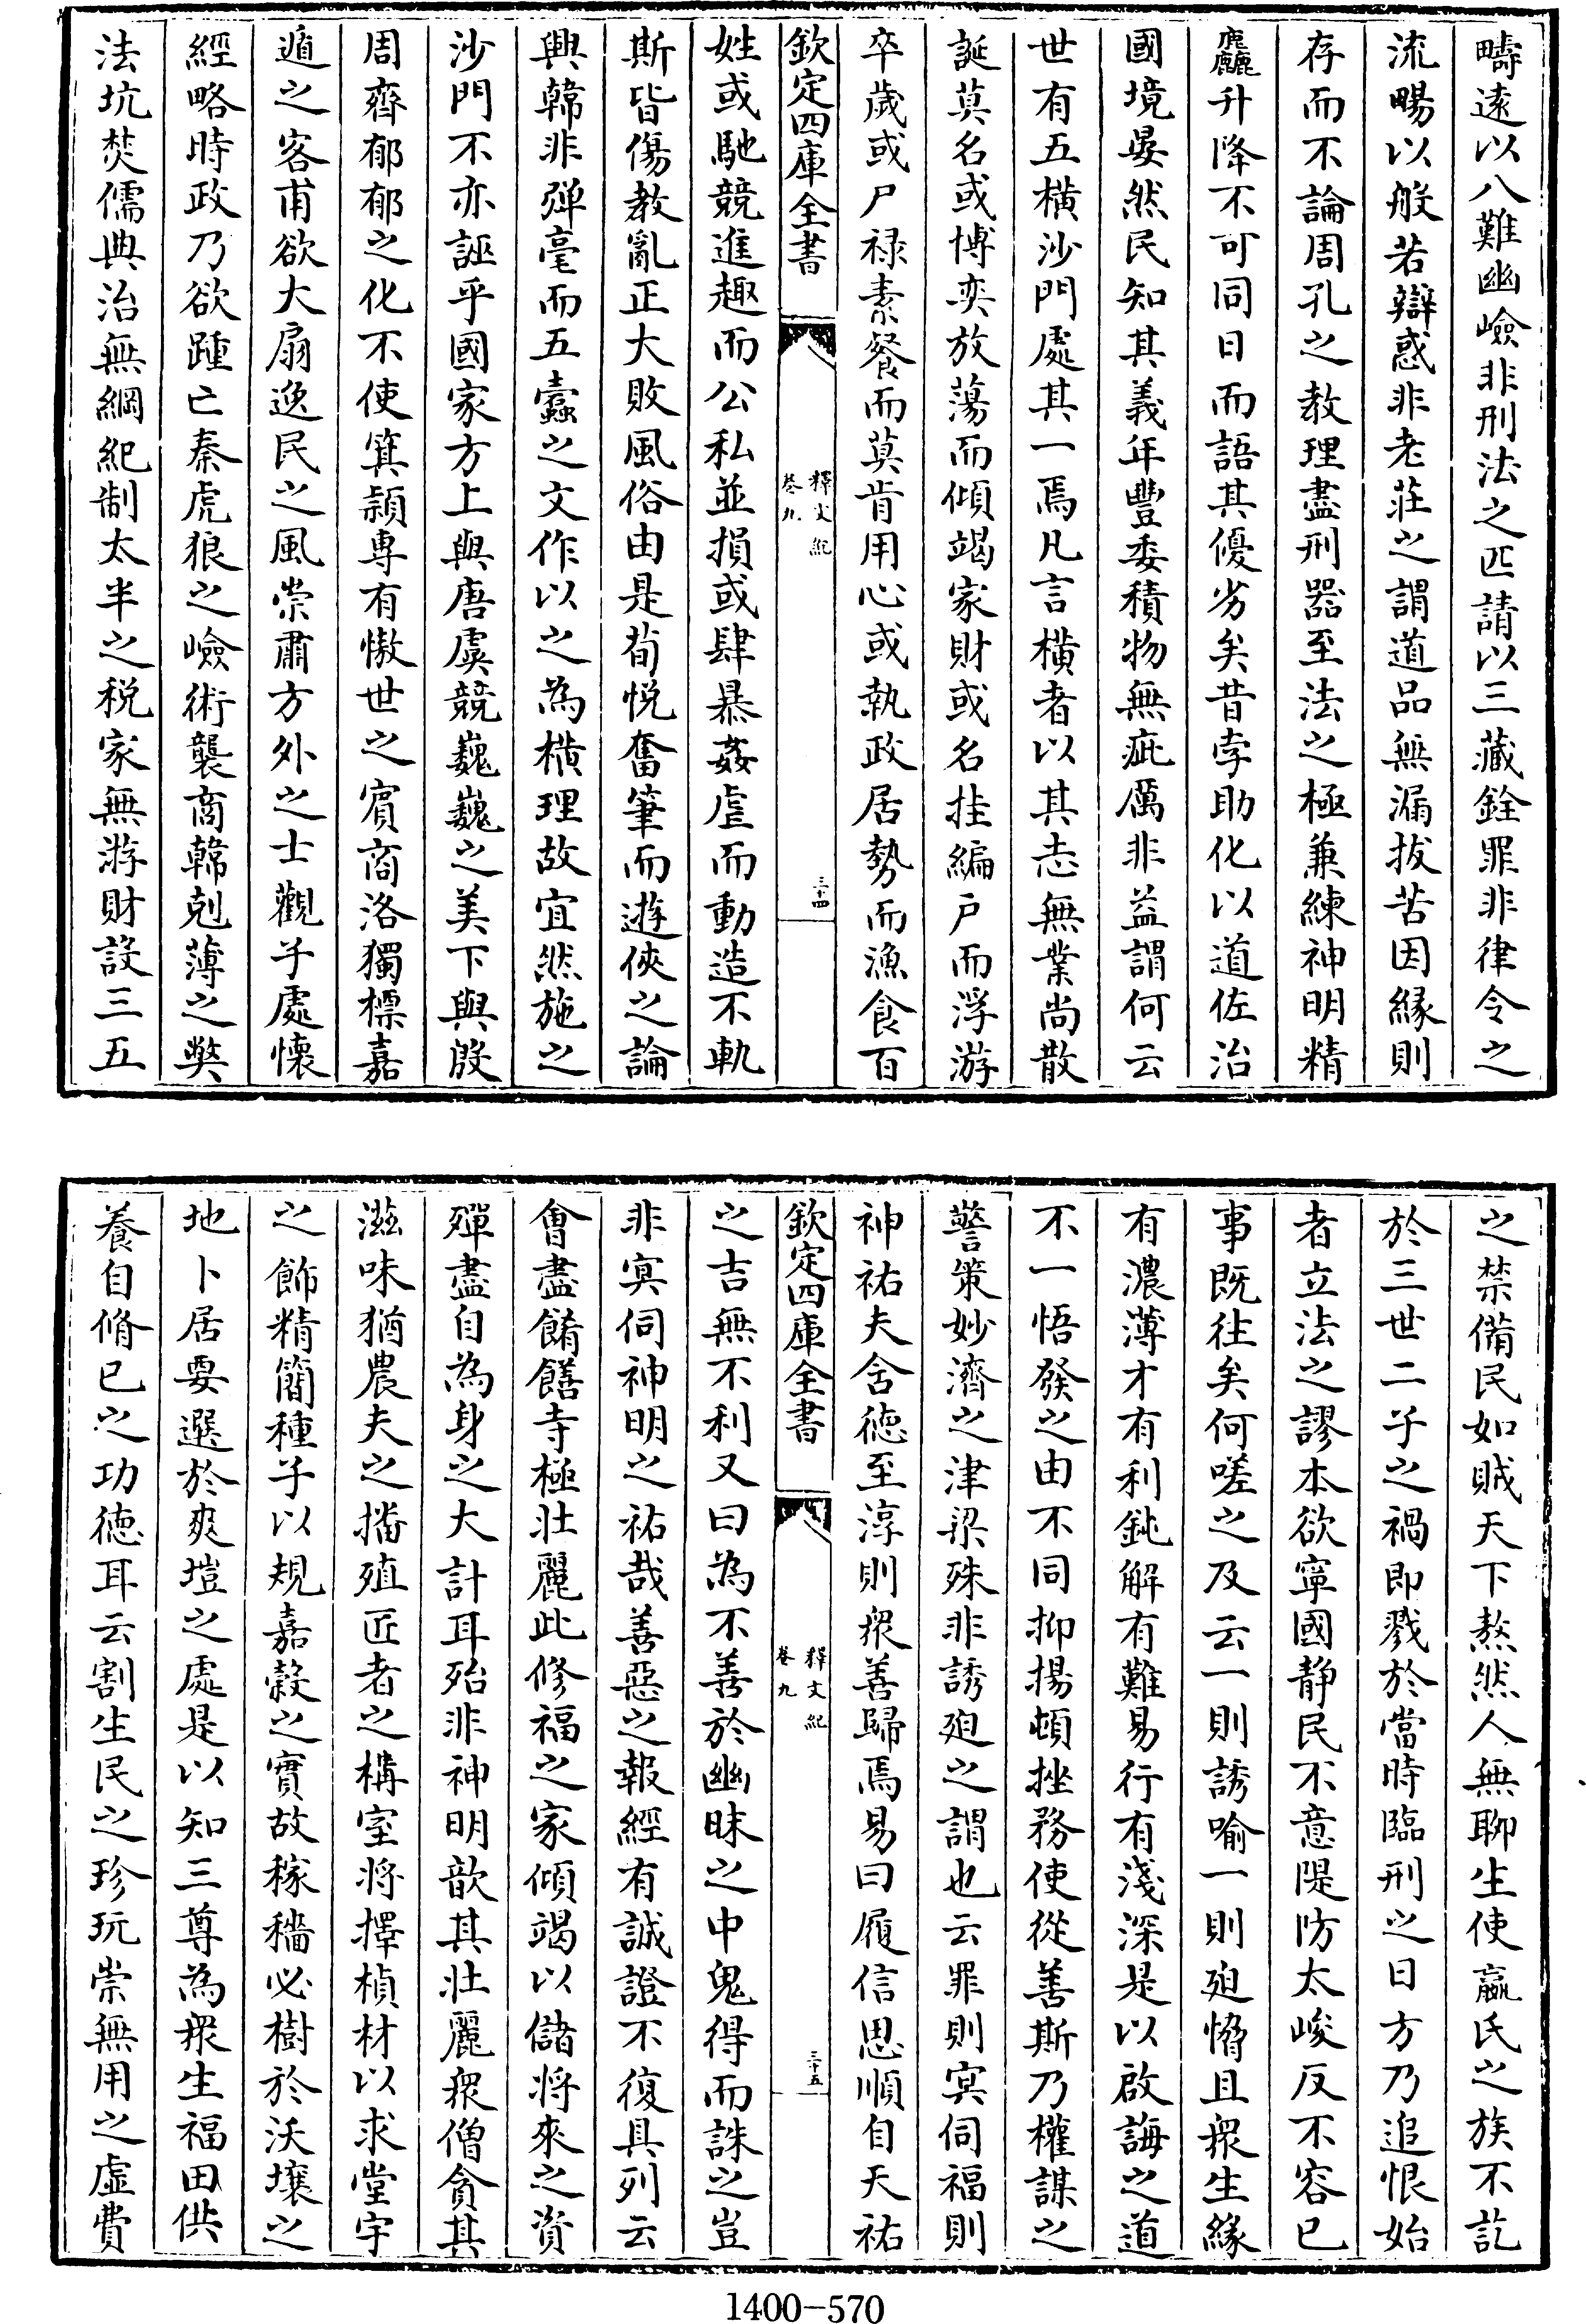 疇遠以八難幽嶮非刑法之匹請以三藏銓罪非律令之
流暢以般若辯惑非老莊之謂道品無漏拔苦因縁則
存而不論周孔之教理盡刑器至法之極兼練神明精
麤升降不可同日而語其優劣矣昔孛助化以道佐治
國境晏然民知其義年豐委積物無疵厲非益謂何云
世有五横沙門處其一焉凡言横者以其志無業尚散
誕莫名或博奕放蕩而傾竭家財或名挂編户而浮游
卒歲或尸禄素餐而莫肯用心或執政居勢而漁食百
欽定四庫全書
釋文紀
卷九
三十四
姓或馳競進趣而公私並損或肆暴姦虐而動造不軌
斯皆傷教亂正大敗風俗由是荀悦奮筆而遊俠之論
興韓非彈毫而五蠧之文作以之為横理故宜然施之
沙門不亦誣乎國家方上與唐虞競巍巍之美下與殷
周齊郁郁之化不使箕潁專有慠世之賓商洛獨標嘉
遁之客甫欲大扇逸民之風崇肅方外之士觀子處懷
經略時政乃欲踵亡秦虎狼之嶮術襲商韓剋薄之獘
法坑焚儒典治無綱紀制太半之税家無游財設三五
之禁備民如賊天下熬然人無聊生使嬴氏之族不訖
於三世二子之禍即戮於當時臨刑之日方乃追恨始
者立法之謬本欲寧國静民不意隄防太峻反不容已
事既往矣何嗟之及云一則誘喻一則廹愶且衆生緣
有濃薄才有利鈍解有難易行有淺深是以啟誨之道
不一悟發之由不同抑揚頓挫務使從善斯乃權謀之
警策妙濟之津梁殊非誘廹之謂也云罪則冥伺福則
神祐夫含德至淳則衆善歸焉易曰履信思順自天祐
欽定四庫全書
釋文紀
卷九
三十五
之吉無不利又曰為不善於幽昧之中鬼得而誅之豈
非冥伺神明之祐哉善惡之報經有誠證不復具列云
會盡餚饍寺極壮麗此修福之家傾竭以儲將來之資
殫盡自為身之大計耳殆非神明歆其壮麗衆僧貪其
滋味猶農夫之播殖匠者之構室將擇楨材以求堂宇
之飾精簡種子以規嘉穀之實故稼穡必樹於沃壤之
地卜居要選於爽塏之處是以知三尊為衆生福田供
養自脩已之功德耳云割生民之珍玩崇無用之虛費
1400-570